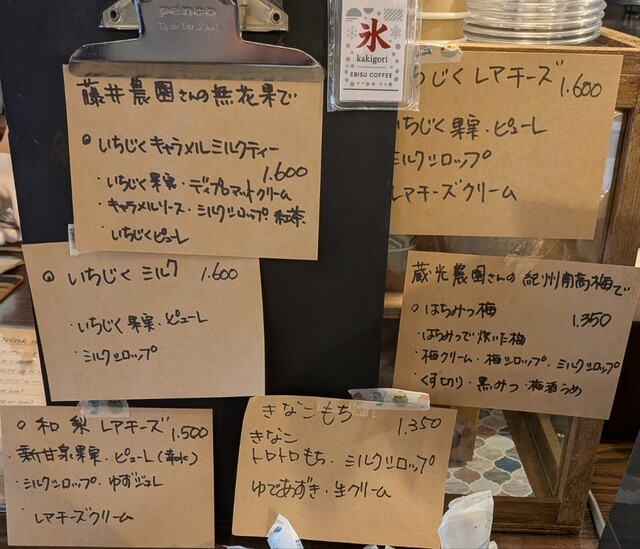 penco
氷
kakigori
EBISU COFFEE
藤井農園さんの無花果で
いちじくキャラメルミルクティー
1.600
・いちじく果実・ディプロマットクリーム
・キャラメルソース・ミルクシロップ 紅茶
・いちじくピューレ
ちじくレアチーズ 1.600
いちじく果実・ピューレ
ミルクシロップ
レアチーズクリーム
いちじくミルク 1.600
・いちじく果実・ピューレ
・ミルクシロップ
蔵光農園さんの紀州南高梅で
○はちみつ梅
1.350
・はちみつで炊いた梅
・梅クリーム・梅シロップ・ミルクシロップ
・くず切り・黒みつ・梅酒うめ
○和梨レアチーズ 1.500
・新甘泉果実・ピューレ
・ミルクシロップ・ゆずジュレ
・レアチーズクリーム
きなこもち 1.350
きなこ
トロトロもち・ミルクシロップ
ゆであずき・生クリーム